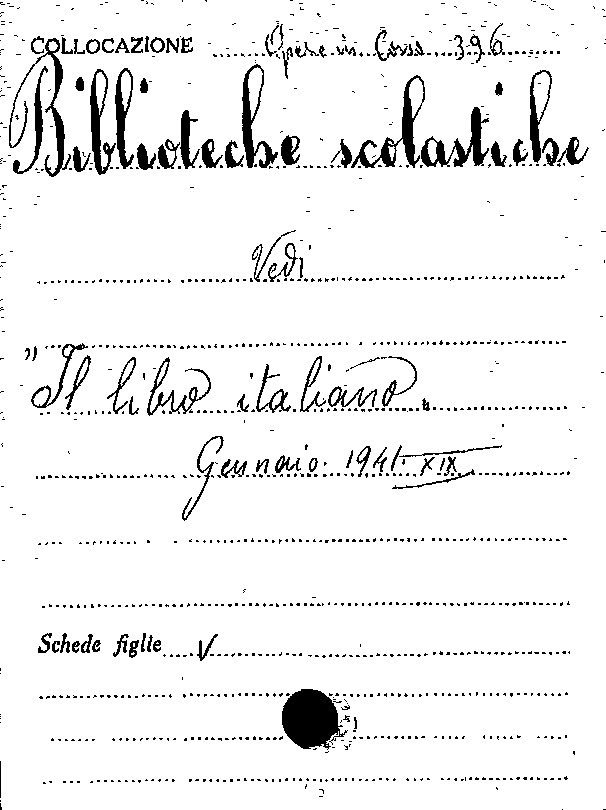 COLLOCAZIONE Opere in Corso 396
Biblioteche scolastiche
Vedi
"Il libro italiano"
Gennaio. 1941. XIX
Schede figlie V